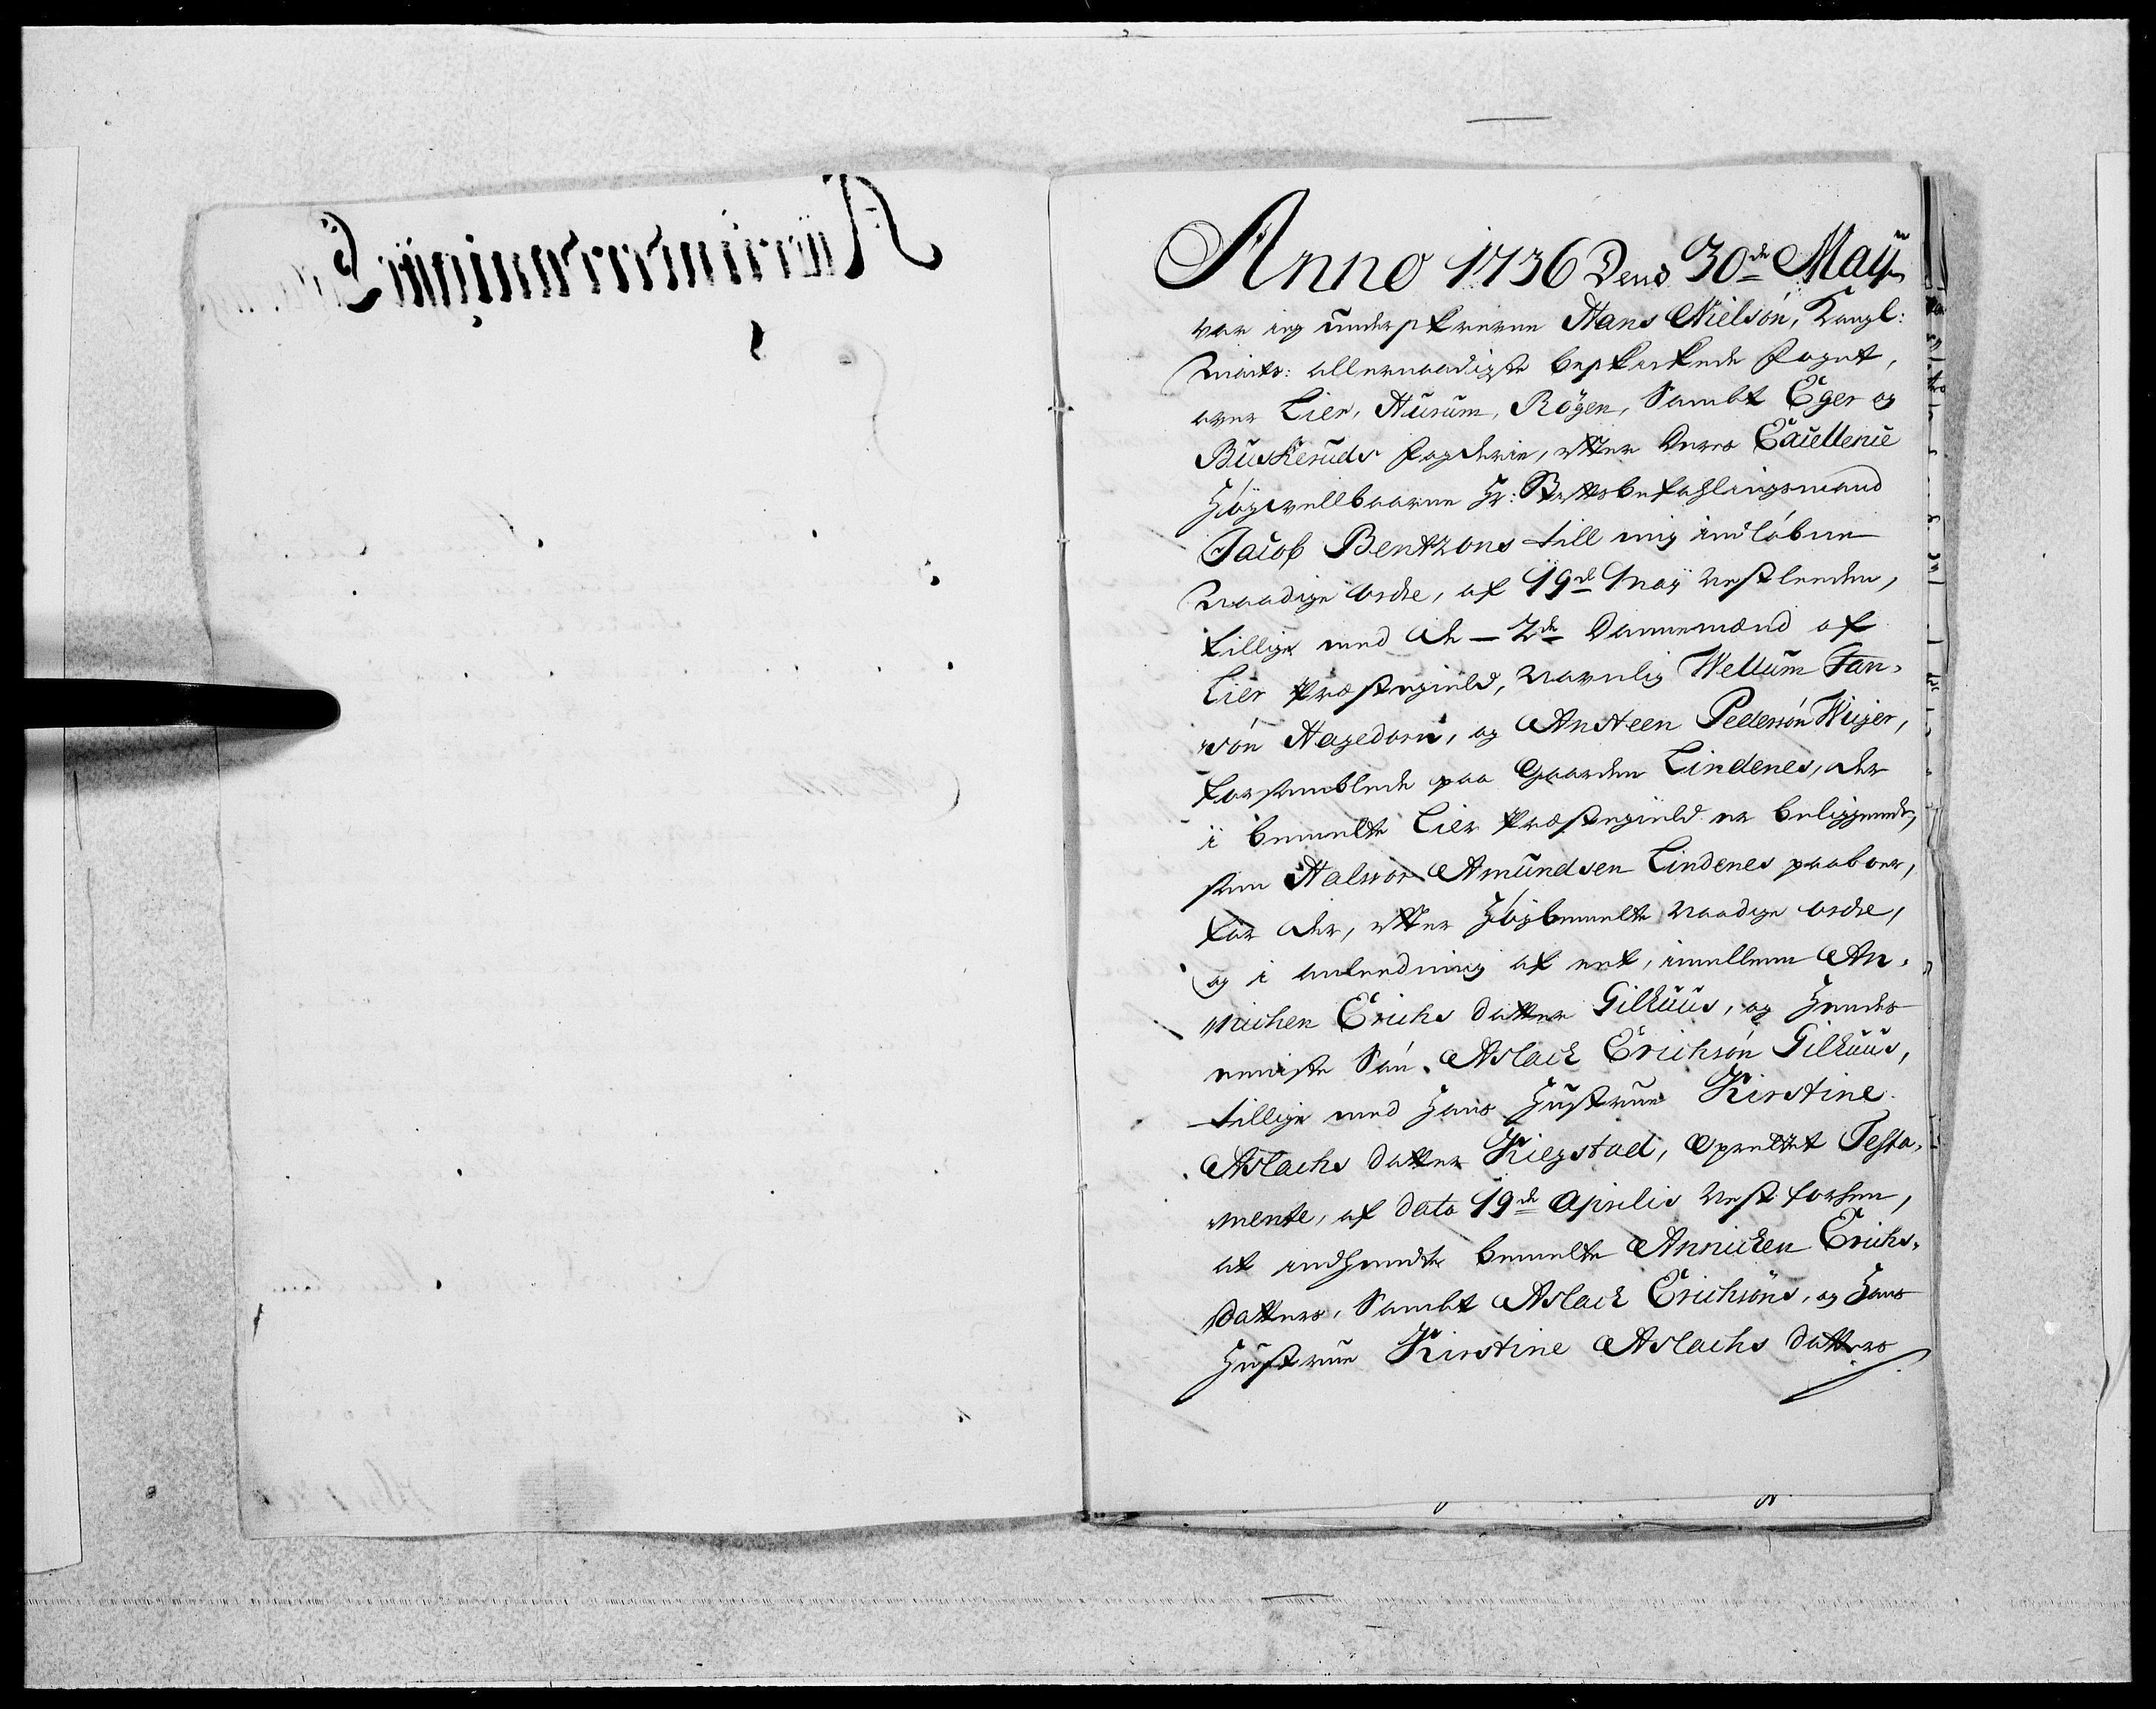 Anno 1736 Dend 30de Maÿ
var ieg underskrevne Hans Nielsøn, Kongl:
Maits: allernaadigste beskikkede Fogut,
over Lier, Hurum, Røgen, Sambt Eger og
Buskeruds Fogderie, etter Deres Excellence
Høyvellbaarne Hr: Stiftsbefahlingsmand
Jacob Bentzons till mig indløbne
Naadige ordre, af 19de Maÿ nestleeden,
tillige med de - 2de Dannemænd af
Lier Præstegield, navnlig Wellum Jan-
søn Hagedorn, og Ansteen Pedersøn Wiger,
forsamblede paa Gaarden Lindenes, der
i bemelte Lier Præstegield er beliggende,
som Halvor Amundsen Lindenes paaboer,
for der, etter Høybemelte naadige ordre,
og i anleedning af eet, imellem An-
nichen Erichs datter Gilhuus, og Hendes
eeniste Søn, Aslack Erichsøn Gilhuus,
tillige med Hans Hustrue Kirstine
Aslachs datter Kiegstad, Oprettet Testa-
mente, af dato 19de Aprilis nest forhen,
at indhendte bemelte Annichen Erichs-
datters, Sambt Aslack Erichsøns, og Hans
Hustrue Kirstine Aslachs datters